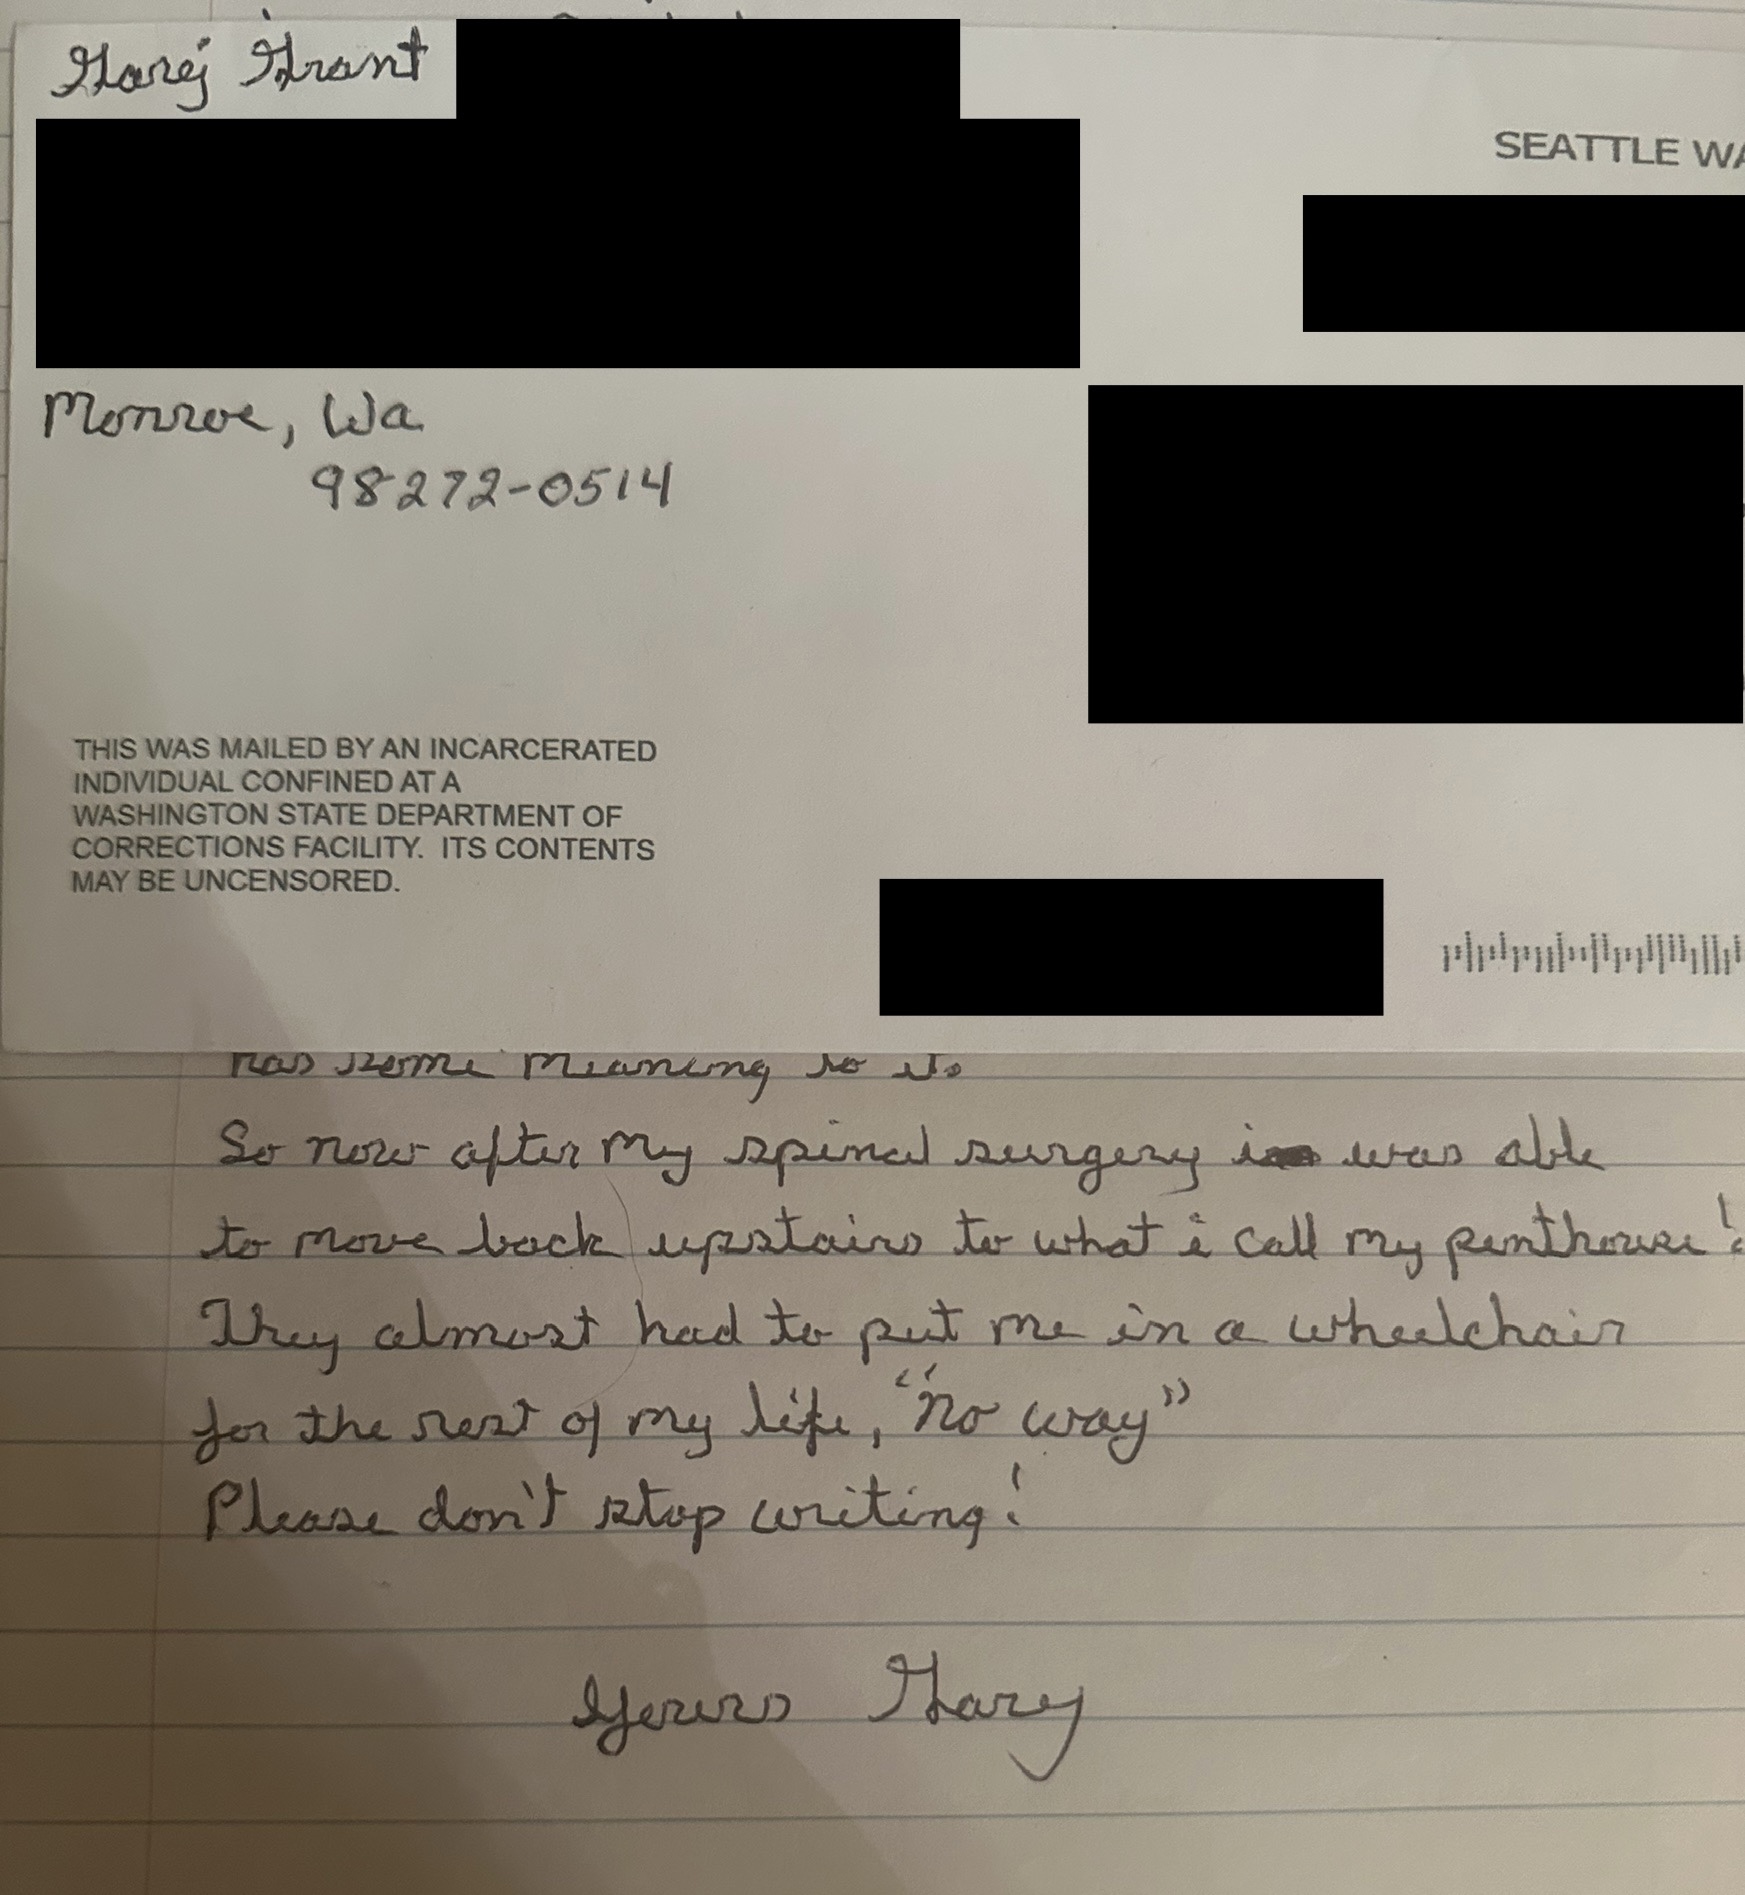 Gary Grant
SEATTLE WA
Monroe, Wa
98272-0514
THIS WAS MAILED BY AN INCARCERATED
INDIVIDUAL CONFINED AT A
WASHINGTON STATE DEPARTMENT OF
CORRECTIONS FACILITY. ITS CONTENTS
MAY BE UNCENSORED.
has some meaning to it.
So now after my spinal surgery i was able
to move back upstairs to what i call my penthouse!
They almost had to put me in a wheelchair
for the rest of my life, "no way"
Please don't stop writing!
Yours Gary